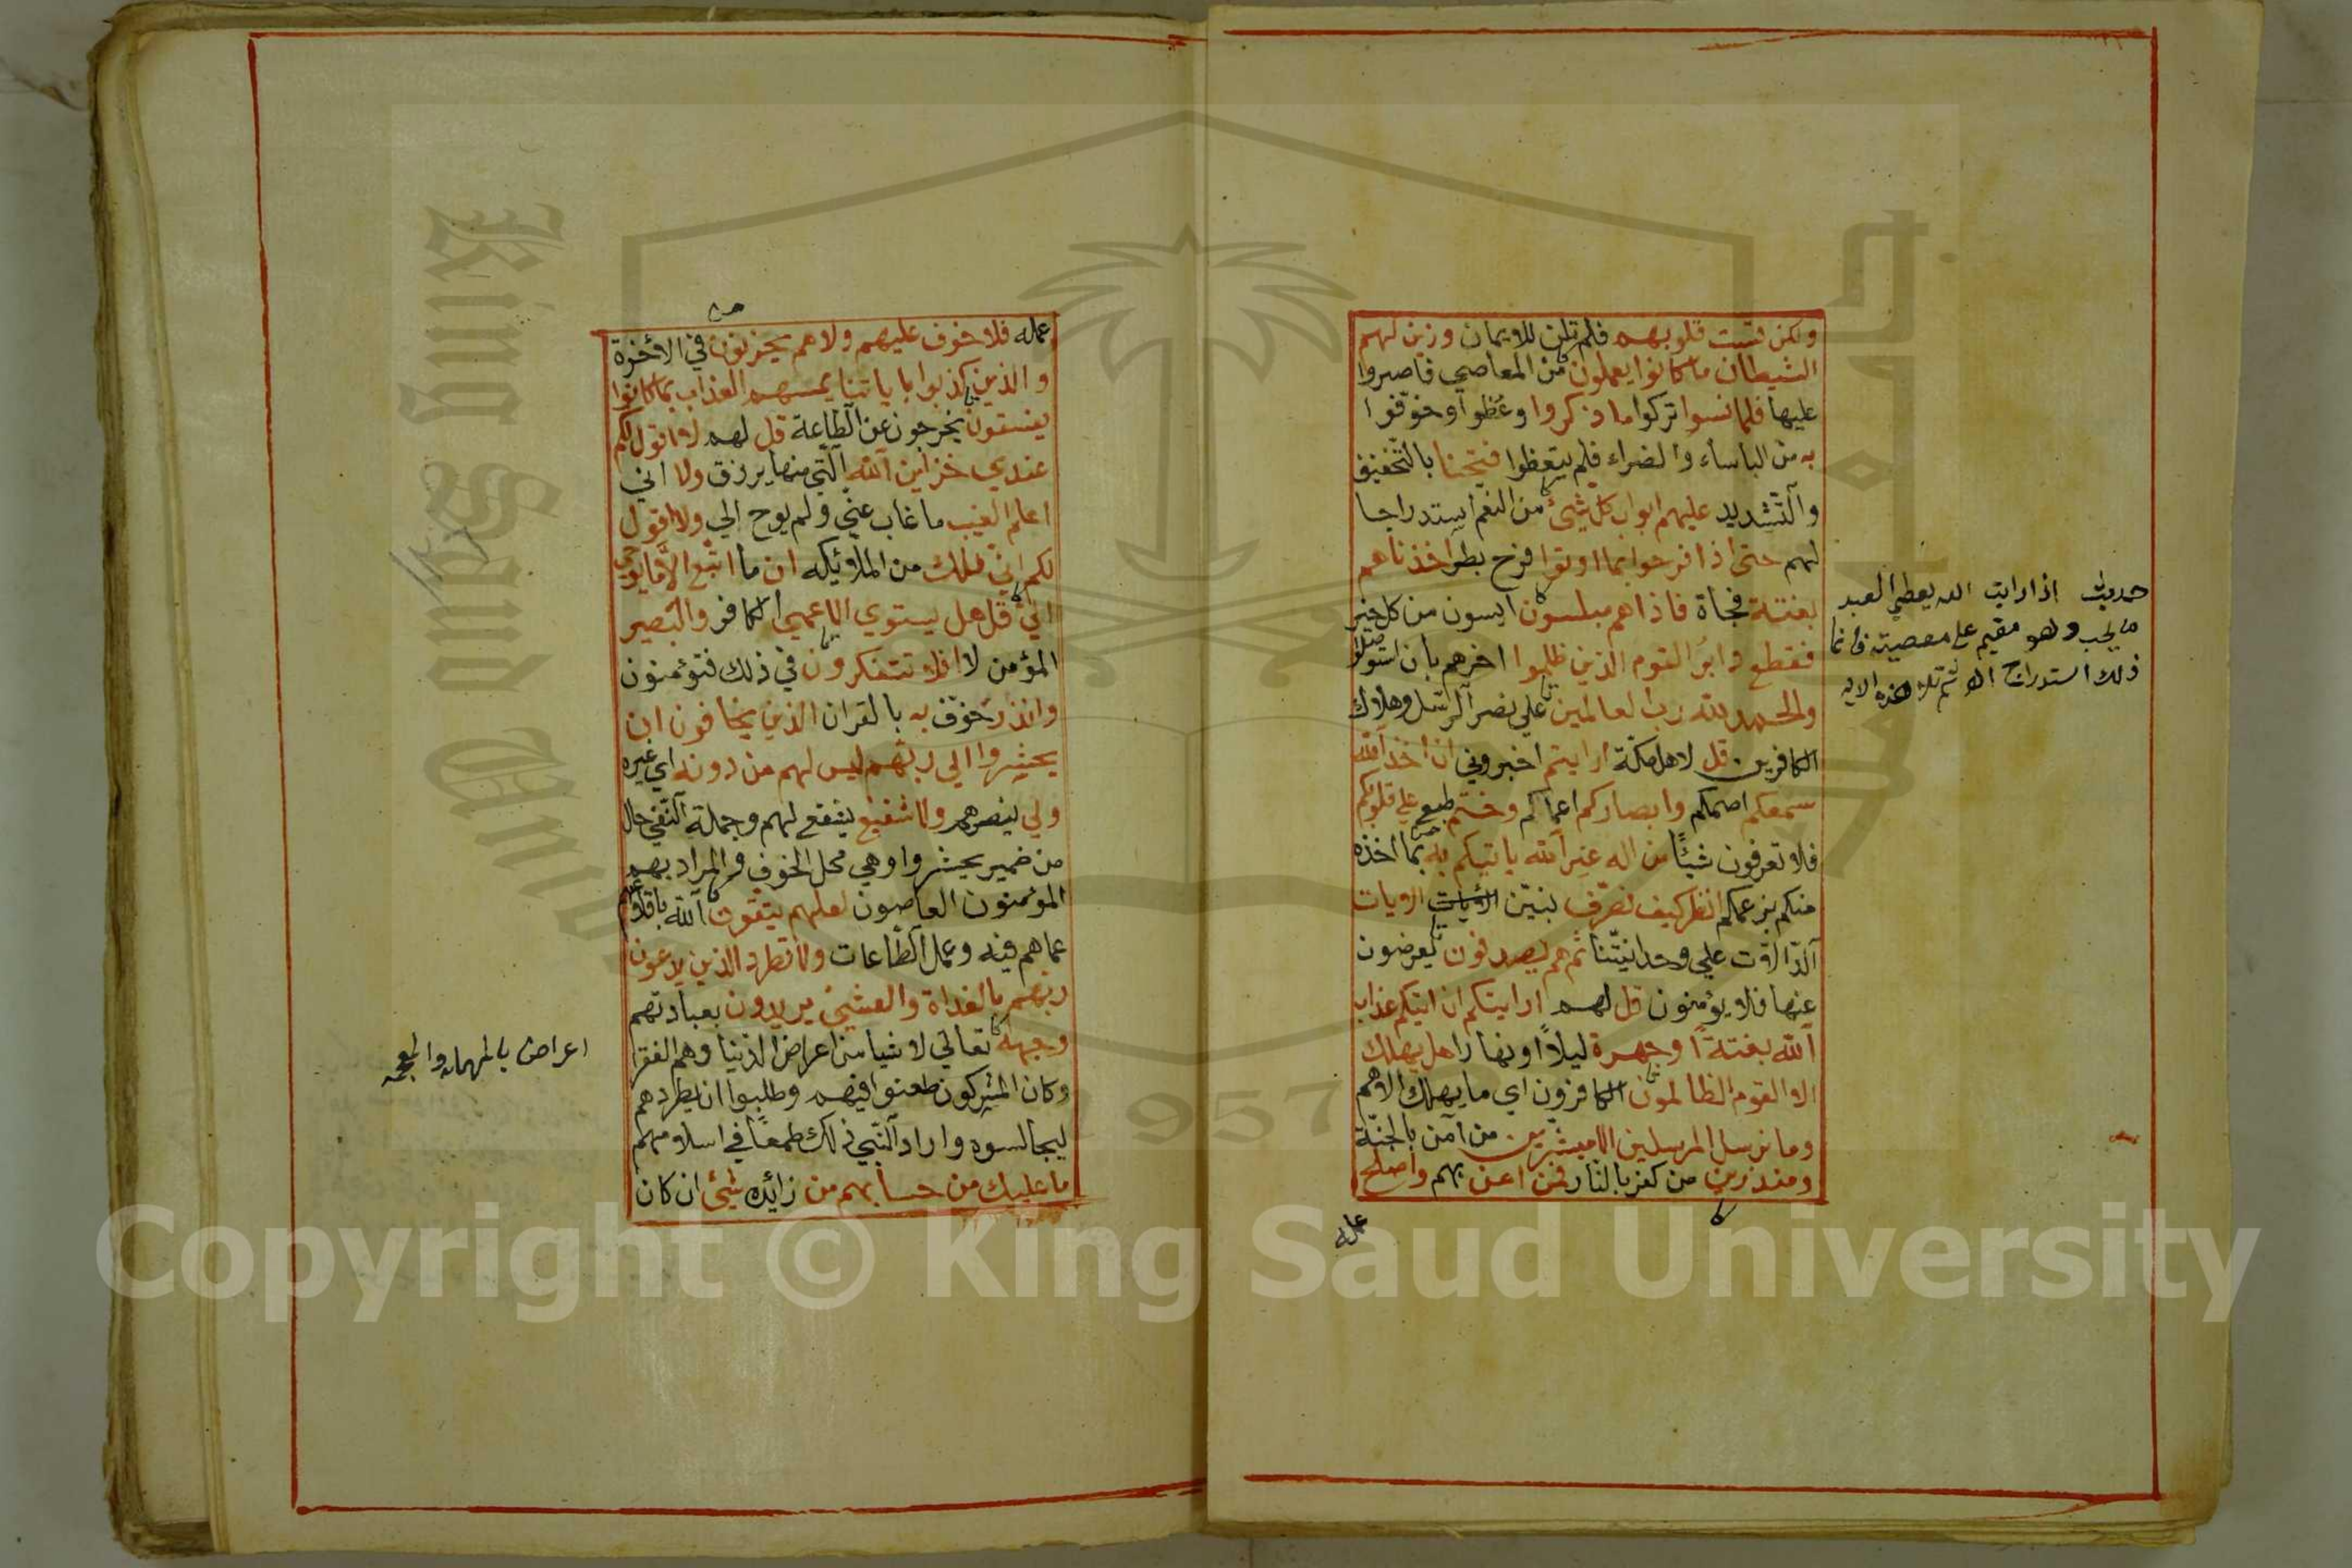 ولكن قست قلوبهم فلم تلن للايمان وزين لهم
الشيطان ما كانوا يعملون من المعاصي فاصروا
عليها فلما نسوا تركوا ما ذكروا وعظوا وخوفوا
به من الباساء والضراء فلم يتعظوا فتحنا بالتخفيف
والتشديد عليهم ابواب كل شيئ من النعم استدراجا
لهم حتى اذا فرحوا بما اوتوا فرح بطر اخذناهم
بغتتة فجاة فاذاهم مبلسون ايسون من كل خير
فقطع دابر القوم الذين ظلموا اخرهم بان استوصلوا
والحمد لله رب العالمين علي نصر الرسل وهلاك
الكافرين قل لاهل مكة ارايتم اخبروني ان اخذ الله
سمعكم اصمكم وابصاركم اعماكم وختم طبع علي قلوبكم
فلا تعرفون شيئًا من اله غير الله ياتيكم به بما اخذه
منكم بزعمكم انظر كيف نصرف نبين الايات
الدالات علي وحدانيتنا ثم هم يصدفون يعرضون
عنها فلا يؤمنون قل لهم ارايتكم ان اتيكم عذاب
الله بغتةً او جهرة ليلاً او نهارا هل يهلك
الا القوم الظالمون الكافرون اي ما يهلك الا هم
وما نرسل المرسلين الا مبشرين من آمن بالجنة
ومنذرين من كفر بالنار فمن امن بهم واصلح
عمله
حديث اذا رايت الله يعطي العبد
ما يحب وهو مقيم على معصيته فانما
ذلك استدراج ثم تلا هذه الايه
عمله فلا خوف عليهم ولاهم يحزنون في الأخرة
والذين كذبوا باياتنا يمسهم العذاب بما كانوا
يفسقون يخرجون عن الطاعة قل لهم لا اقول لكم
عندي خزاين الله التي منها يرزق ولا اني
اعلم الغيب ما غاب عني ولم يوح الي ولا اقول
لكم اني ملك من الملائيكه ان ما اتبع الا ما يوحي
الي قل هل يستوي الاعمي الكافر والبصير
المؤمن لا افلا تتفكرون في ذلك فتؤمنون
وانذر خوف به بالقران الذين يخافون ان
يحشروا الي ربهم ليس لهم من دونه اي غيره
ولي ينصرهم ولا شفيع يشفع لهم وجملة النفي حال
من ضمير يحشروا وهي محل الخوف والمراد بهم
المؤمنون العاصون لعلهم يتقون الله باقلاعهم
عما هم فيه وعمل الطاعات ولا تطرد الذين يدعون
ربهم بالغداة والعشي يريدون بعبادتهم
وجهه تعالي لا شيا من اعراض الدنيا وهم الفقرا
وكان المشركون طعنوا فيهم وطلبوا ان يطردهم
ليجالسوه واراد النبي ذلك طمعًا في اسلامهم
ما عليك من حسابهم من زائده شيئ ان كان
اعراض بالمهمله والمعجمه
King Saud University
1957
Copyright © King Saud University